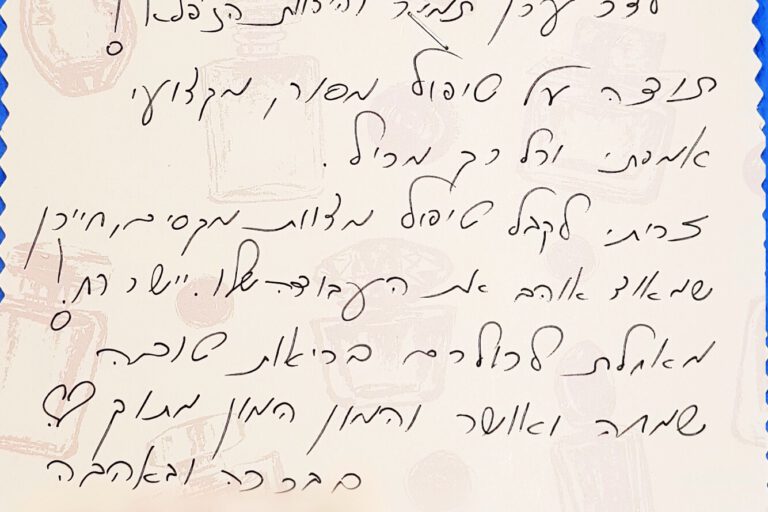 לדר ערן תמיר והצוות הנפלא!
תודה על טיפול מסור, מקצועי
אמפתי וכל כך מכיל.
זכיתי לקבל טיפול מצוות מקסים, חייכן
שמאוד אוהב את העבודה שלו. יישר כח!
מאחלת לכולכם בריאות טובה
שמחה ואושר והמון המון מתוק ♡
בברכה ובאהבה